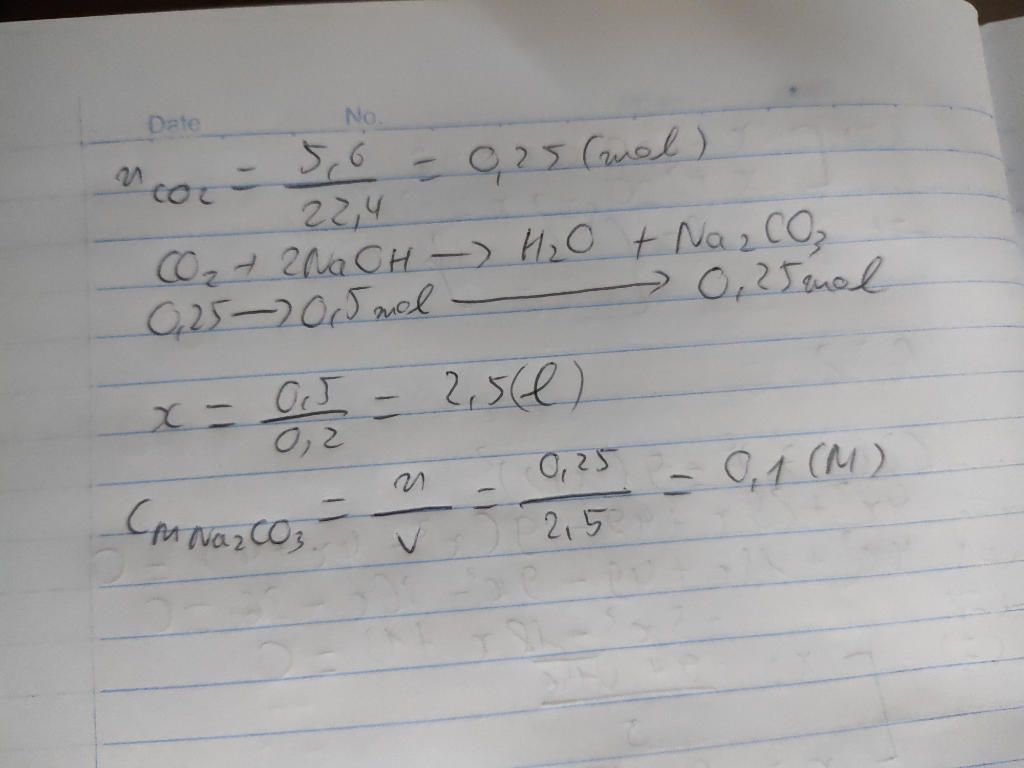 Date No.
n CO2 = 5,6 / 22,4 = 0,25 (mol)
CO2 + 2NaOH → H2O + Na2CO3
0,25 → 0,5 mol → 0,25 mol
x = 0,5 / 0,2 = 2,5 (l)
CM Na2CO3 = n / V = 0,25 / 2,5 = 0,1 (M)